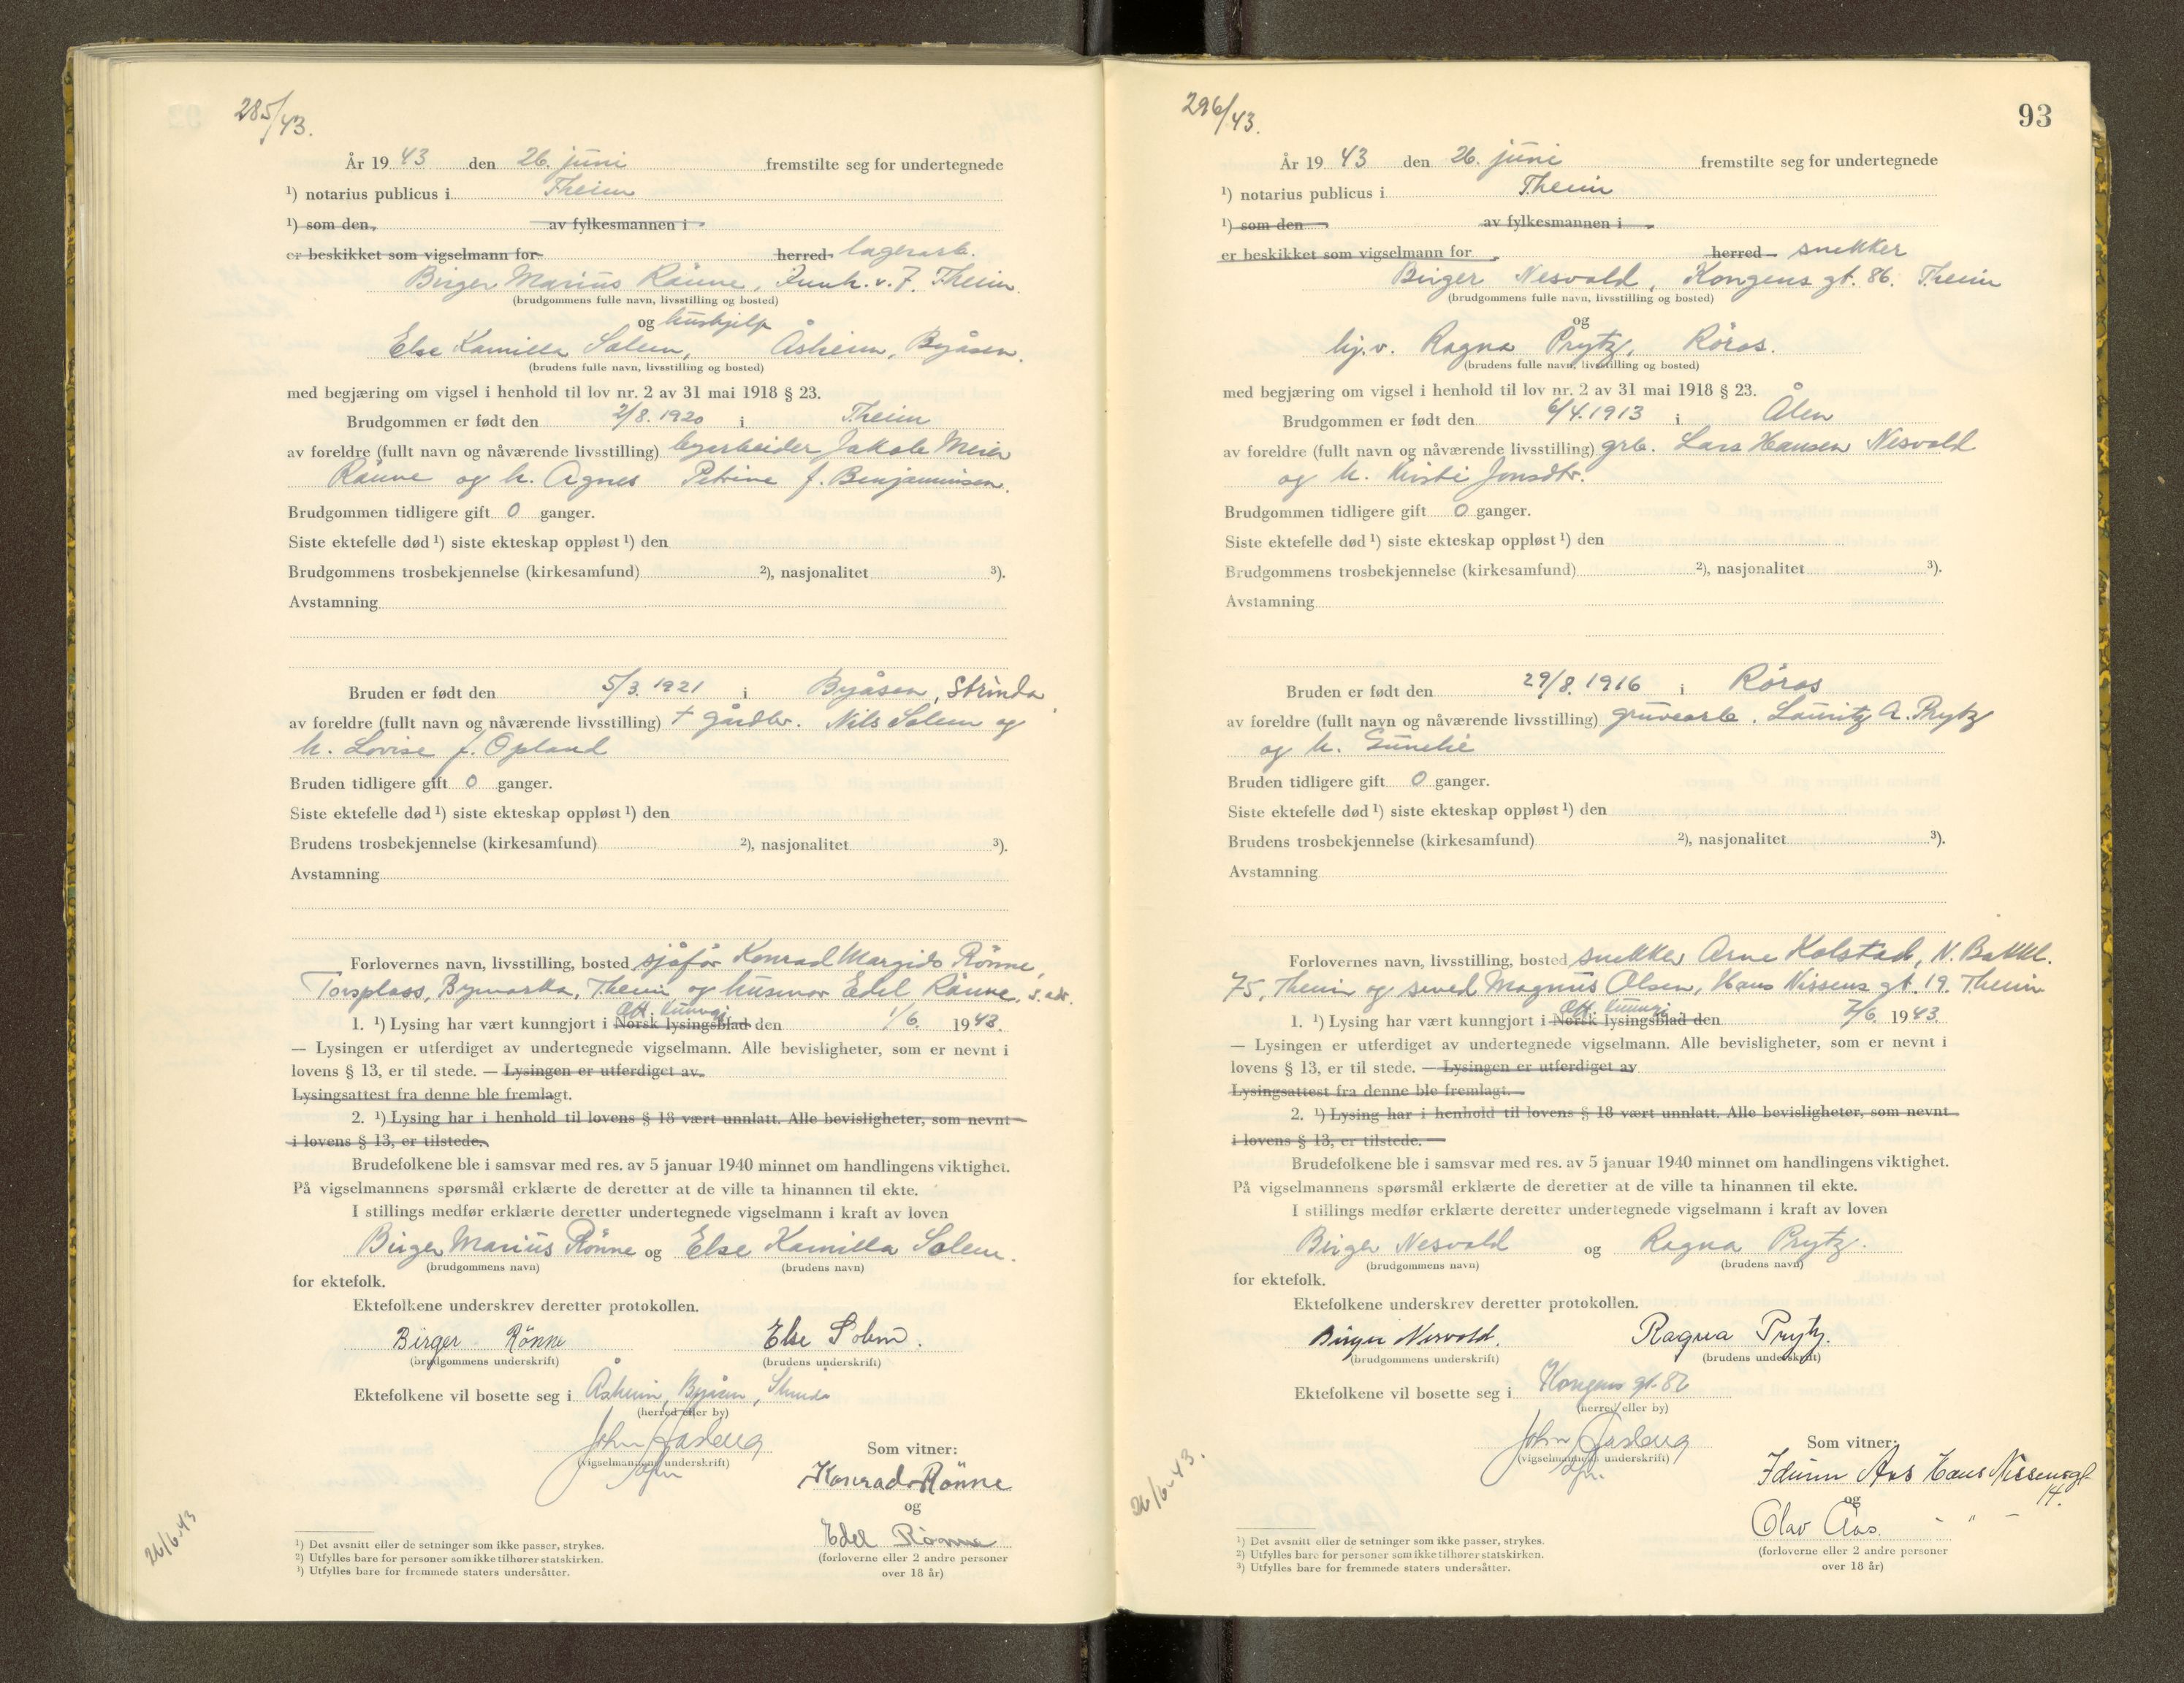 285/43.
År 1943 den 26. juni fremstilte seg for undertegnede
¹) notarius publicus i Theim
¹) som den, av fylkesmannen i
er beskikket som vigselmann for herred lagerarb.
Birger Marius Rönne, v. 7. Theim.
(brudgommens fulle navn, livsstilling og bosted)
og hushjelp
Else Kamilla Solem, Åsheim, Byåsen.
(brudens fulle navn, livsstilling og bosted)
med begjæring om vigsel i henhold til lov nr. 2 av 31 mai 1918 § 23.
Brudgommen er født den 2/8. 1920 i Theim
av foreldre (fullt navn og nåværende livsstilling) Jakob Meier
Rönne og h. Agnes Petrine f. Benjaminsen.
Brudgommen tidligere gift 0 ganger.
Siste ektefelle død ¹) siste ekteskap oppløst ¹) den
Brudgommens trosbekjennelse (kirkesamfund) ²), nasjonalitet ³).
Avstamning
Bruden er født den 5/3. 1921 i Byåsen, Strinda
av foreldre (fullt navn og nåværende livsstilling) + gårdbr. Nils Solem og
h. Lovise f. Opland
Bruden tidligere gift 0 ganger.
Siste ektefelle død ¹) siste ekteskap oppløst ¹) den
Brudens trosbekjennelse (kirkesamfund) ²), nasjonalitet ³).
Avstamning
Forlovernes navn, livsstilling, bosted sjåfør Konrad Margido Rönne,
Torsplass, Bymarka, Theim og husmor Edel Rönne, s. adr.
Off. kunngj.
1. ¹) Lysing har vært kunngjort i Norsk lysingsblad den 1/6. 1943.
— Lysingen er utferdiget av undertegnede vigselmann. Alle bevisligheter, som er nevnt i
lovens § 13, er til stede. — Lysingen er utferdiget av
Lysingsattest fra denne ble fremlagt.
2. ¹) Lysing har i henhold til lovens § 18 vært unnlatt. Alle bevisligheter, som nevnt
i lovens § 13, er tilstede.
Brudefolkene ble i samsvar med res. av 5 januar 1940 minnet om handlingens viktighet.
På vigselmannens spørsmål erklærte de deretter at de ville ta hinannen til ekte.
I stillings medfør erklærte deretter undertegnede vigselmann i kraft av loven
Birger Marius Rönne og Else Kamilla Solem.
(brudgommens navn) (brudens navn)
for ektefolk.
Ektefolkene underskrev deretter protokollen.
Birger Rönne Else Solem.
(brudgommens underskrift) (brudens underskrift)
Ektefolkene vil bosette seg i Åsheim, Byåsen, Strinda
(herred eller by)
John Aasberg
(vigselmannens underskrift)
Som vitner:
Konrad Rönne
og
Edel Rönne
(forloverne eller 2 andre personer
over 18 år)
26/6-43
¹) Det avsnitt eller de setninger som ikke passer, strykes.
²) Utfylles bare for personer som ikke tilhører statskirken.
³) Utfylles bare for fremmede staters undersåtter.
296/43.
93
År 1943 den 26. juni fremstilte seg for undertegnede
¹) notarius publicus i Theim
¹) som den av fylkesmannen i
er beskikket som vigselmann for herred snekker
Birger Nesvold, Kongens gt. 86. Theim
(brudgommens fulle navn, livsstilling og bosted)
og
hj.v. Ragna Prytz, Röros.
(brudens fulle navn, livsstilling og bosted)
med begjæring om vigsel i henhold til lov nr. 2 av 31 mai 1918 § 23.
Brudgommen er født den 6/4.1913 i Ålen
av foreldre (fullt navn og nåværende livsstilling) grb. Lars Hansen Nesvold
og h. Kirsti Jonsdtr.
Brudgommen tidligere gift 0 ganger.
Siste ektefelle død ¹) siste ekteskap oppløst ¹) den
Brudgommens trosbekjennelse (kirkesamfund) ²), nasjonalitet ³).
Avstamning
Bruden er født den 29/8. 1916 i Röros
av foreldre (fullt navn og nåværende livsstilling) gruvearb. Lauritz A. Prytz
og h. Gunelie
Bruden tidligere gift 0 ganger.
Siste ektefelle død ¹) siste ekteskap oppløst ¹) den
Brudens trosbekjennelse (kirkesamfund) ²), nasjonalitet ³).
Avstamning
Forlovernes navn, livsstilling, bosted snekker Arne Kolstad, N. Bakkl.
75, Theim og smed Magnus Olsen, Hans Nissens gt. 19. Theim
Off. kunngj.
1. ¹) Lysing har vært kunngjort i Norsk lysingsblad den 7/6. 1943.
— Lysingen er utferdiget av undertegnede vigselmann. Alle bevisligheter, som er nevnt i
lovens § 13, er til stede. — Lysingen er utferdiget av
Lysingsattest fra denne ble fremlagt.
2. ¹) Lysing har i henhold til lovens § 18 vært unnlatt. Alle bevisligheter, som nevnt
i lovens § 13, er tilstede.
Brudefolkene ble i samsvar med res. av 5 januar 1940 minnet om handlingens viktighet.
På vigselmannens spørsmål erklærte de deretter at de ville ta hinannen til ekte.
I stillings medfør erklærte deretter undertegnede vigselmann i kraft av loven
Birger Nesvold og Ragna Prytz.
(brudgommens navn) (brudens navn)
for ektefolk.
Ektefolkene underskrev deretter protokollen.
Birger Nesvold. Ragna Prytz.
(brudgommens underskrift) (brudens underskrift)
Ektefolkene vil bosette seg i Kongens gt. 86
(herred eller by)
John Aasberg
(vigselmannens underskrift)
Som vitner:
Idunn Aas Hans Nissensgt
14.
og
Olav Aas. - " -
(forloverne eller 2 andre personer
over 18 år)
26/6-43.
¹) Det avsnitt eller de setninger som ikke passer, strykes.
²) Utfylles bare for personer som ikke tilhører statskirken.
³) Utfylles bare for fremmede staters undersåtter.